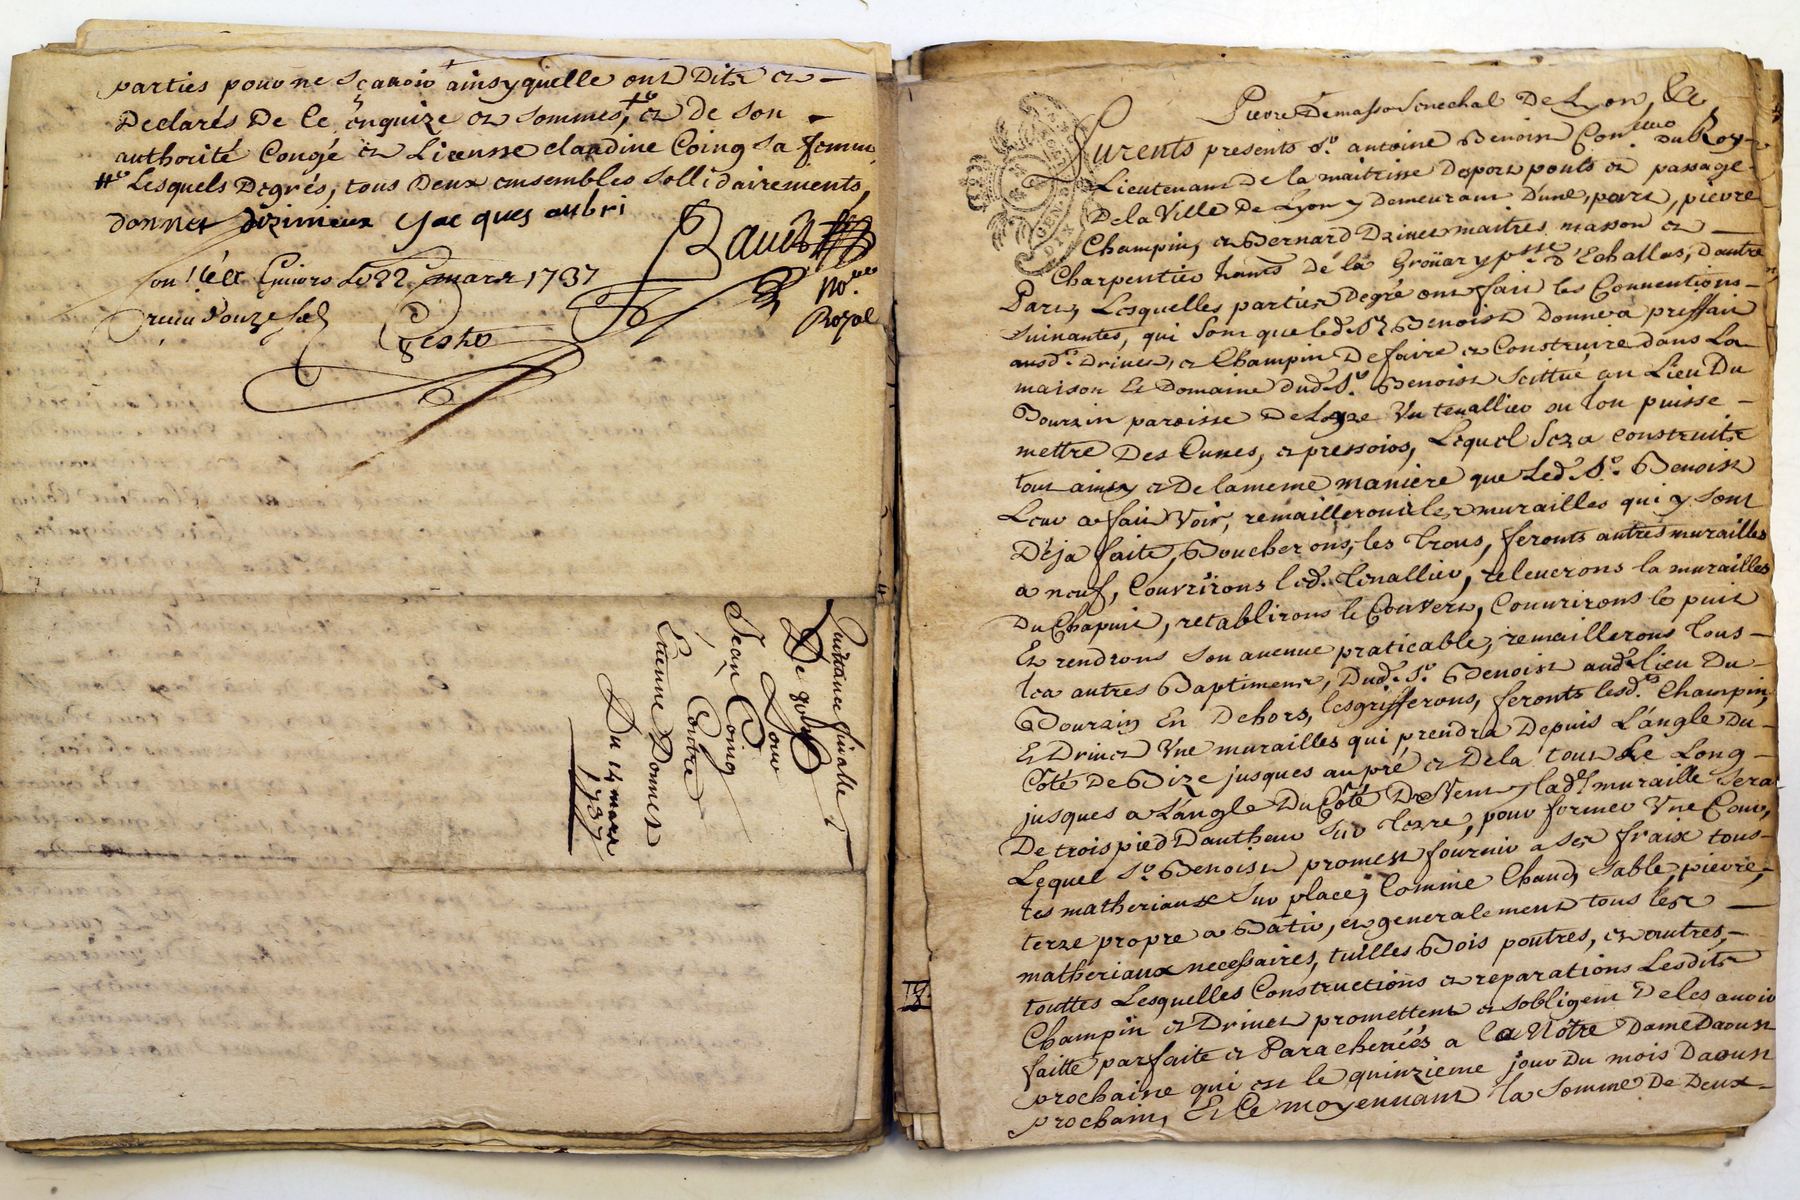 parties pour ne sçavoir ainsy quelle ont Dits et
Declarés De ce enquize et sommes, et de son
authorité Congé et Licensse claudine Coing sa femme,
Lesquels Degrés, tous Deux emsembles sollidairements,
donnet dizimieux Jacques aubri
no.re
Royal
Givors Le 22 mars 1737
reçu douze sols
Quittance finalle
De
pour
Jean Coing
Contre
Etienne Donnet
Du 14 mars
1737
Pierre Demasso Senechal De Lyon, &c
GEN. DE LYON
Furents presents sr. antoine Benoist Con.er du Roy
Lieutenant De la maitrisse Des ports ponts et passage
De la Ville De Lyon y Demeurant D'une part, pierre
Champin, et Bernard Drivet maitres masson et
Charpentier hants de la Groüar psse d'Echallas, d'autre
Part, Lesquelles parties Degré ont fait les Conventions
suivantes, qui sont que led. Sr Benoist Donne a prisffait
ausd. Drivet, et Champin De faire et Construire dans La
maison et Domaine dud. Sr. Benoist scittué au Lieu Du
Bourzin paroisse De Loyre Un tenallier ou lon puisse
mettre Des Cuves, et pressoirs, Lequel sera construite
tout ainsy et De la meme maniere que Led. Sr. Benoist
Leur a fait Voir, remailleront les murailles qui y sont
Deja faite, Boucherons, les trous, feronts autres murailles
a neuf, Couvrirons led. tenallier, releverons la murailles
Du Chapuit, retablirons le Couvert, Couvrirons le puit
Et rendrons son avenue praticable, remaillerons tous
les autres Baptiments, Dud. Sr. Benoist aud. lieu Du
Bourzin En Dehors, les grifferons, feronts lesd. Champin,
Et Drivet Une murailles qui prendra Depuis L'angle Du
Côté De Bize jusques au pré et De la tout Le Long
jusques a L'angle Du Côté De Vent, lad. muraille sera
De trois pied D'autheur sur terre, pour former Une Cour,
Lequel Sr. Benoist promest fournir a ses fraix tous
les matheriaux sur place, Comme Chaud, sable, pierre,
terre propre a Bâtir, et generalement tous les
matheriaux necessaires, tuilles Bois poutres, et autres,
touttes Lesquelles Constructions et reparations Lesdits
Champin et Drivet promettent et sobligent De les avoir
faitte parfaite et Parachevéés a la Notre Dame Daoust
prochaine qui est le quinzieme jour Du mois Daoust
prochain, Et Ce moyennant la somme De Deux